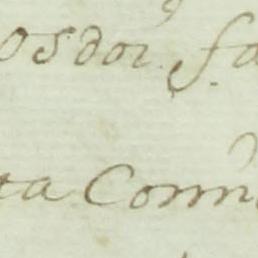 osdoi fa
ta Conn